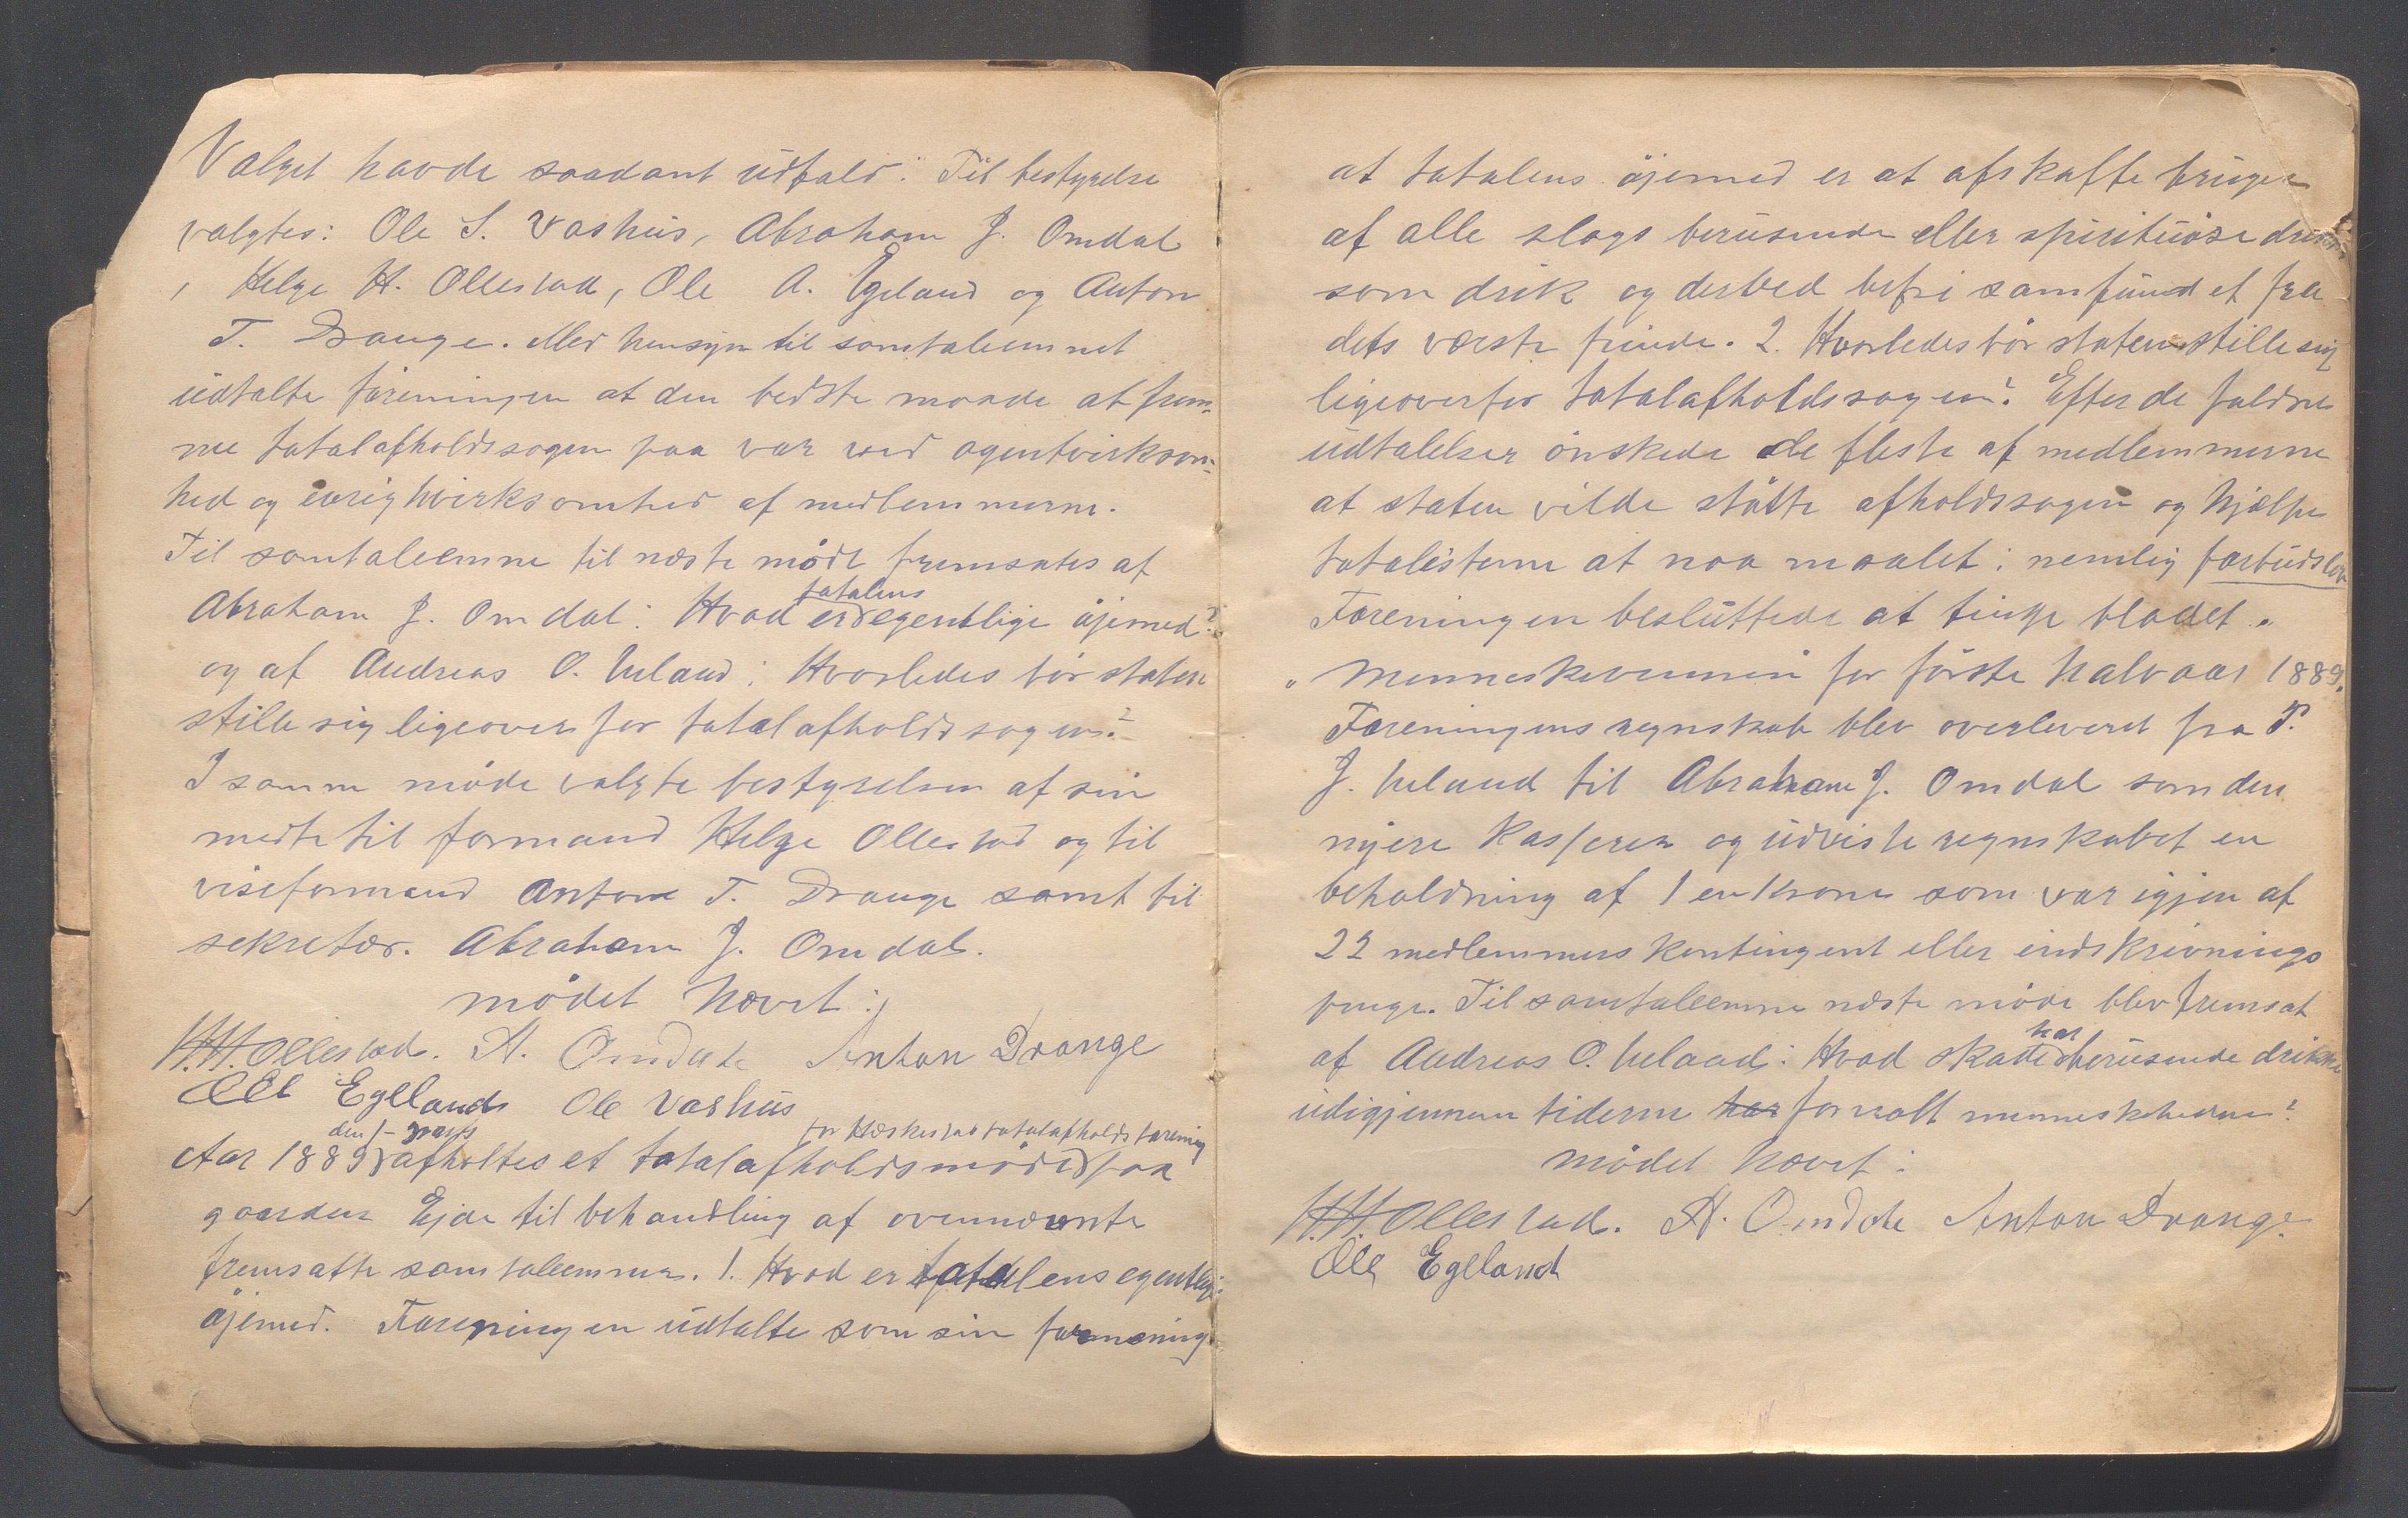 Valget havde saadant udfald: Til bestyrelse
valgtes: Ole S. Vashus, Abraham J. Omdal
, Helge H. Ollestad, Ole A. Egeland og Anton
T. Drange. Med hensyn til samtaleemnet
udtalte foreningen at den bedste maade at frem-
me totalafholdssagen paa var ved agentvirksom-
hed og ivrig hvirksomhed af medlemmerne.
Til samtaleemne til næste møde fremsates af
totalens
Abraham J. Omdal: Hvad er egentlige øjemed?
og af Andreas O. Ueland: Hvorledes bør staten
stille sig ligeoverfor totalafholdssagen?
I samme møde valgte bestyrelsen af sin
midte til formand Helge Ollestad og til
viseformand Anton T. Drange samt til
sekretær. Abraham J. Omdal.
mødet hævet:
H.H. Ollestad. A. Omdal Anton Drange
Ole Egeland Ole Vashus
den 1- marts for Hæskestad totalafholdsforening
Aar 1889 afholtes et totalafholdsmøde paa
gaarden Ejde til behandling af ovennævnte
fremsatte samtaleemner. 1. Hvad er totalens egentlige
øjemed. Foreningen udtalte som sin formening
at totalens øjemed er at afskaffe brugen
af alle slags berusende eller spirituøse drikke
som drik og derved befri samfundet fra
dets værste fiende. 2. Hvorledes bør staten stille sig
ligeoverfor totalafholdssagen? Efter de faldne
udtalelser ønskede de fleste af medlemmerne
at staten vilde støtte afholdssagen og hjælpe
totalisterne at naa maalet: nemlig forbudslov
Foreningen besluttede at tinge bladet "
" Menneskevennen for første halvaar 1889.
Foreningens regnskab blev overleveret fra P.
J. Ueland til Abraham J. Omdal som den
nyere Kasserer og udviste regnskabet en
beholdning af 1 en krone som var igjen af
22 medlemmers kontingent eller indskrivnings
penge. Til samtaleemne næste møde blev fremsat
har
af Andreas O. Ueland: Hvad skade berusende drikke
udigjennem tiderne har forvoldt menneskeheden?
mødet hævet:
H.H. Ollestad. A. Omdal Anton Drange.
Ole Egeland